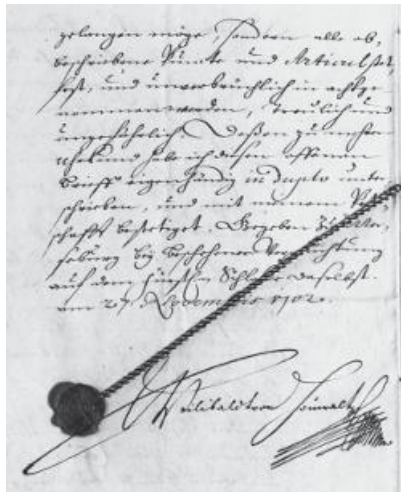 gelangen möge, sondern alle ob,
beschriebene Puncte und Articul stet,
fest, und unverbrüchlich in acht ge
nommen werden, treulich und
ungefährlich. Deßen zu mehrer
Uhrkund habe ich diesen offenen
Brieff eigenhändig in duplo unter
schrieben, und mit meinem Pet
schafft bestetiget. Gegeben
bey beschehener
auf dem Schloße daselbst
am 27. 1702.